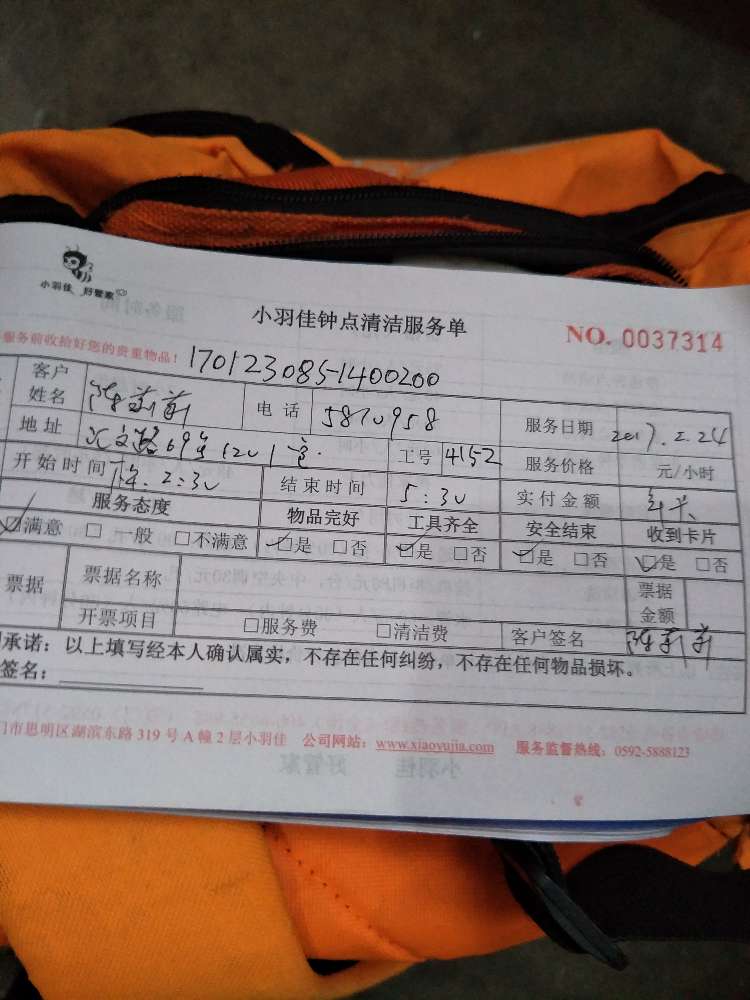 小羽佳 好管家
小羽佳钟点清洁服务单
NO. 0037314
服务前收拾好您的贵重物品！
170123085-1400200
客户姓名 电话 5810958 服务日期 2017.2.24
地址 69号1201室. 工号 4152 服务价格 元/小时
开始时间 下午.2:30 结束时间 5:30 实付金额 年卡
服务态度 物品完好 工具齐全 安全结束 收到卡片
☑满意 □一般 □不满意 ☑是 □否 ☑是 □否 ☑是 □否 ☑是 □否
票据 票据名称 票据金额
开票项目 □服务费 □清洁费 客户签名
承诺：以上填写经本人确认属实，不存在任何纠纷，不存在任何物品损坏。
签名：
门市思明区湖滨东路 319 号 A 幢 2 层小羽佳 公司网站：www.xiaoyujia.com 服务监督热线：0592-5888123